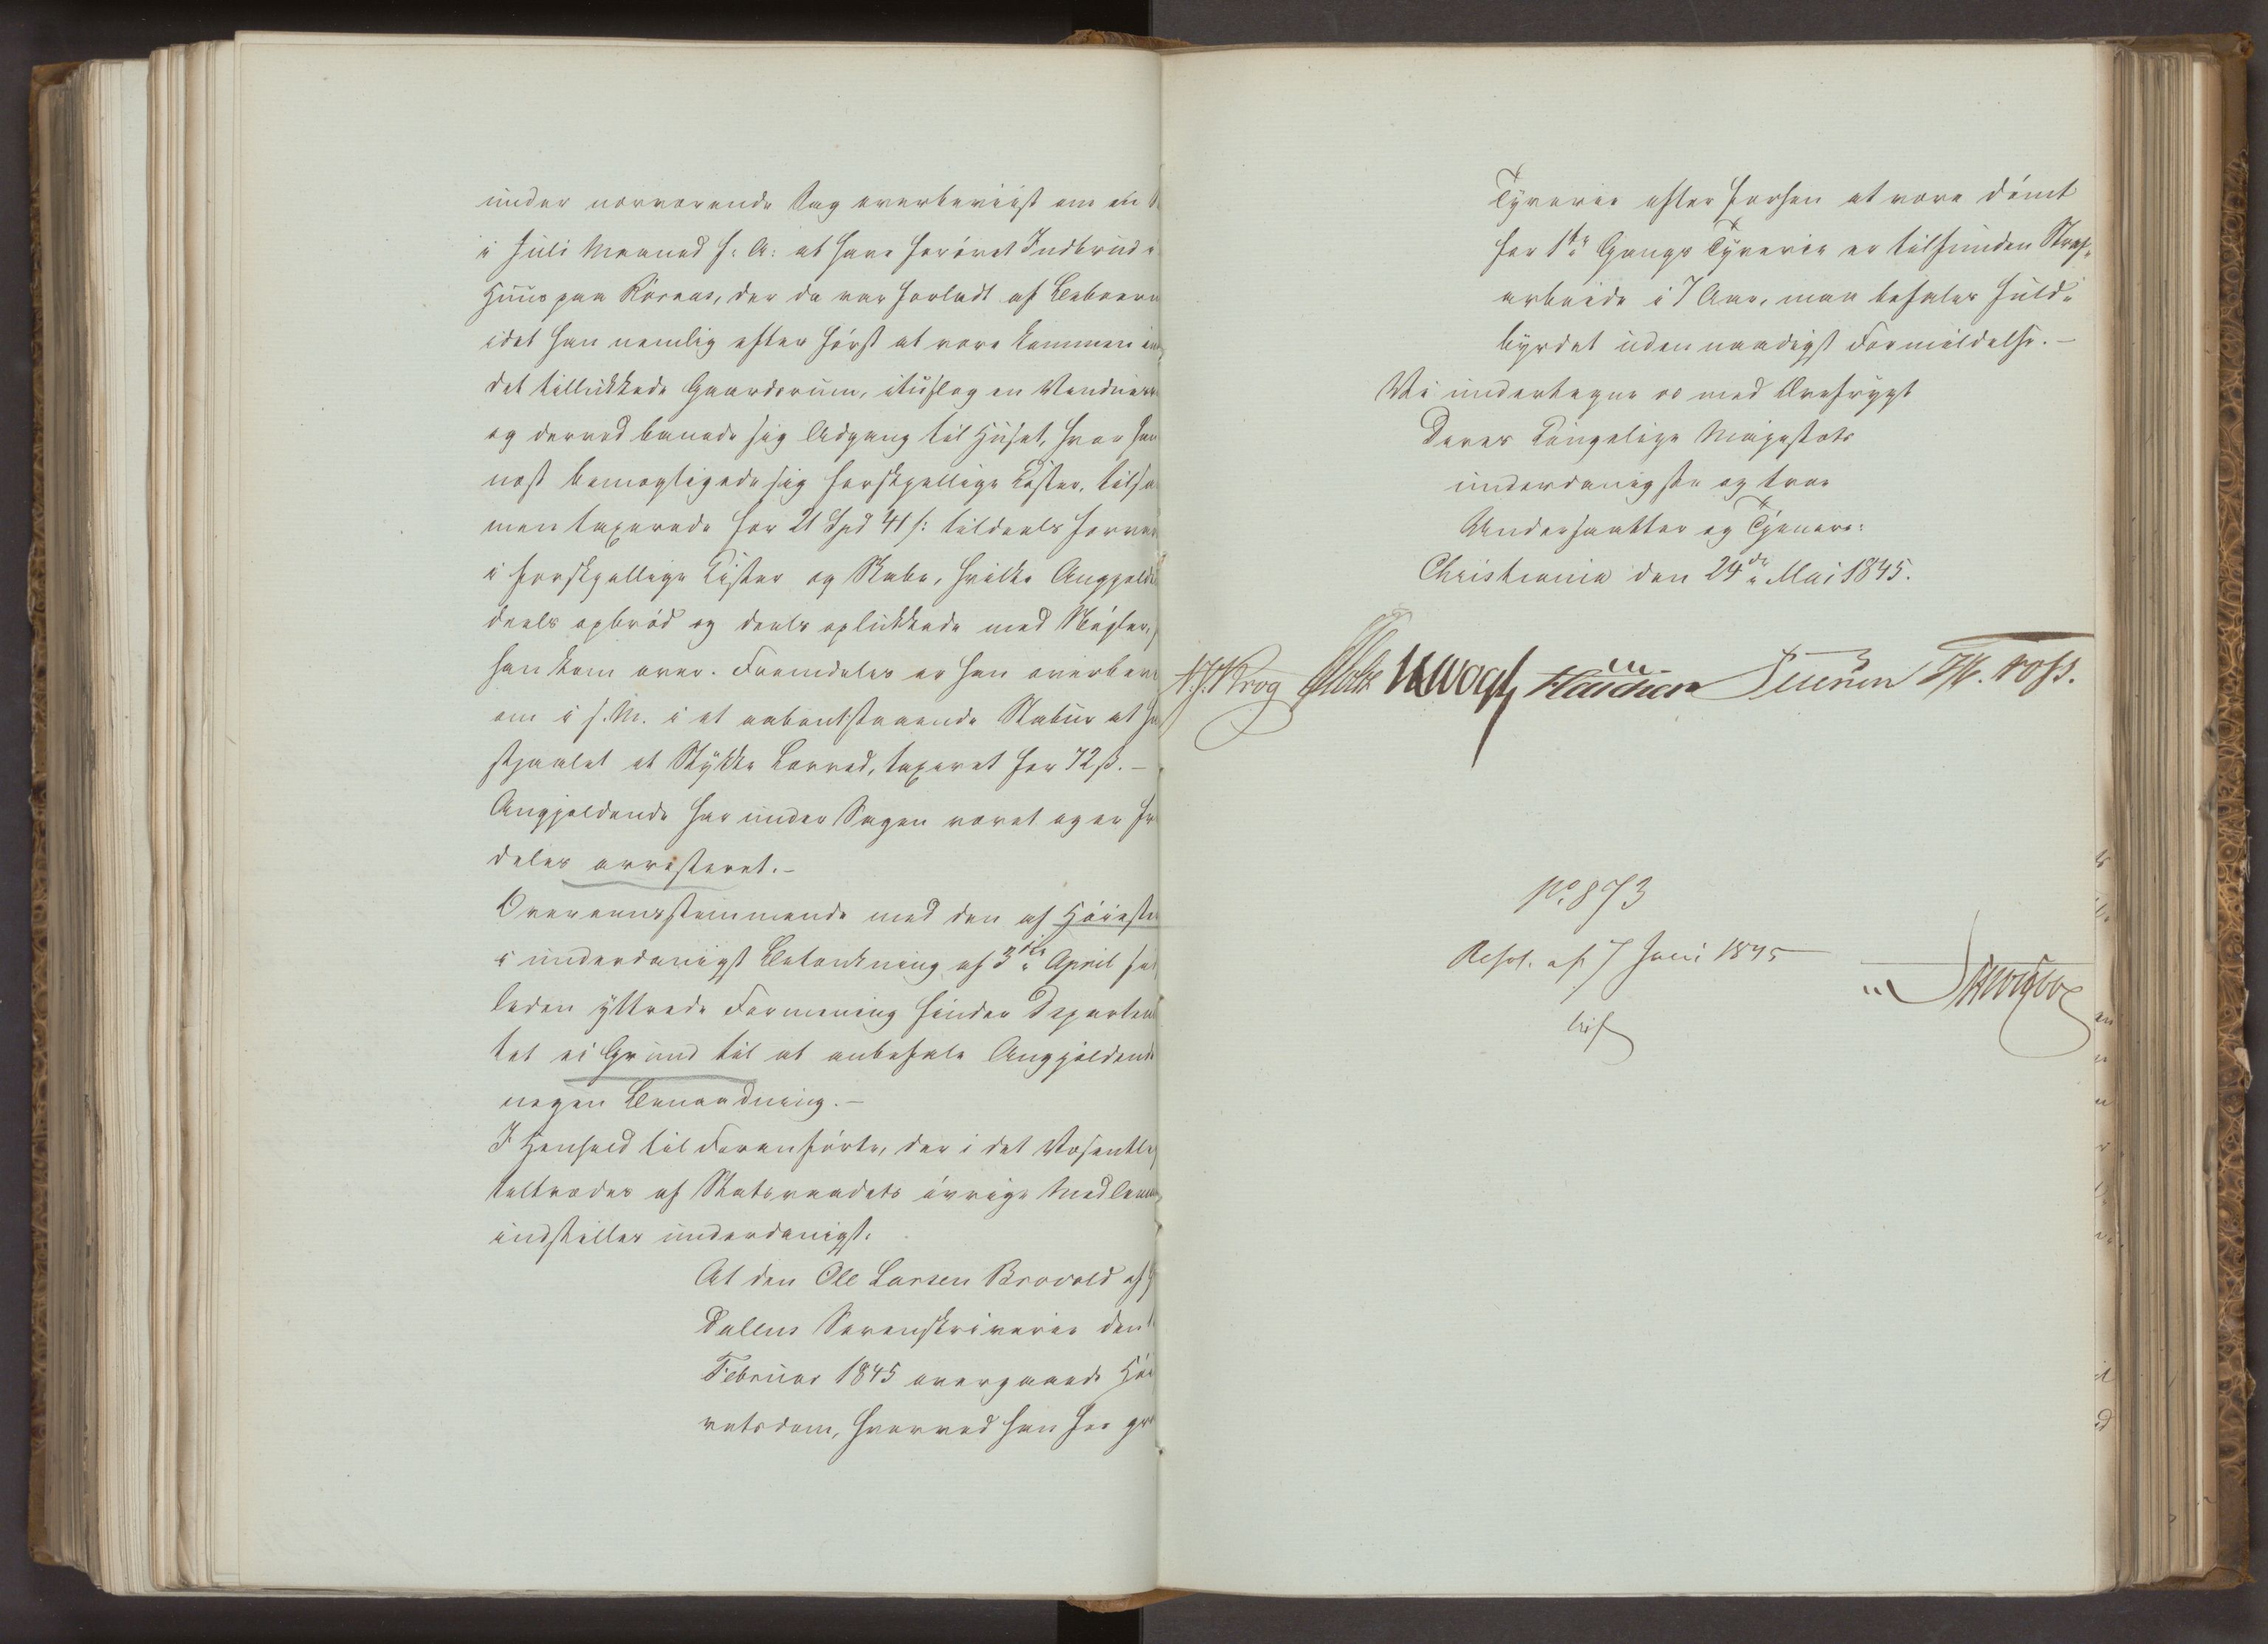 under nærværende Sag overbeviist om en
i Juli Maaned f: A: at have forövet Indbrud i
Huus paa Röraas, der da var forladt af Beboern
idet han nemlig efter först at være kommen ind
det tillukkede Gaardsrum, ituslog en Vindues
og derved banede sig Adgang til Huset, hvor han
næst bemægtigede sig forskjellige Koster, tilsa
men taxerede for 21 Spd 41 s: tildeels forvar
i forskjellige Kister og Skabe, hvilke Angjelde
deels opbröd og deels oplukkede med Nögler,
han kom over. Fremdeles er han overbev
om i s. M. i et aabentstaaende Stabur at ha
stjaalet et Stykke Lærred, taxeret for 72 ß. –
Angjeldende har under Sagen været og er fr
deles arresteret. –
Overeensstemmende med den af Höieste
i underdanigst Betænkning af 3die April sid
leden yttrede Formening finder Departem
tet ei Grund til at anbefale Angjeldende
nogen Benaadning. –
I Henhold til Foranförte, der i det Væsentlig
tiltrædes af Statsraadets övrige Medlemm
indstilles underdanigst:
At den Ole Larsen Brovold af
Dallens Sorenskriverie den
Februar 1845 overgaaede Höi
retsdom, hvorved han for gr
Tyverie efter forhen at være dömt
for 1ste Gangs Tyverie er tilfunden Straf„
arbeide i 7 Aar, maa befales fuld„
byrdet uden naadigst Formildelse. –
Vi undertegne os med Ærefrygt
Deres Kongelige Majestæts
underdanigste og troe
Undersaatter og Tjenere:
Christiania den 24de Mai 1845.
H. J. Krog Holst JHVogt
No. 873
Resol. af 7 Juni 1845